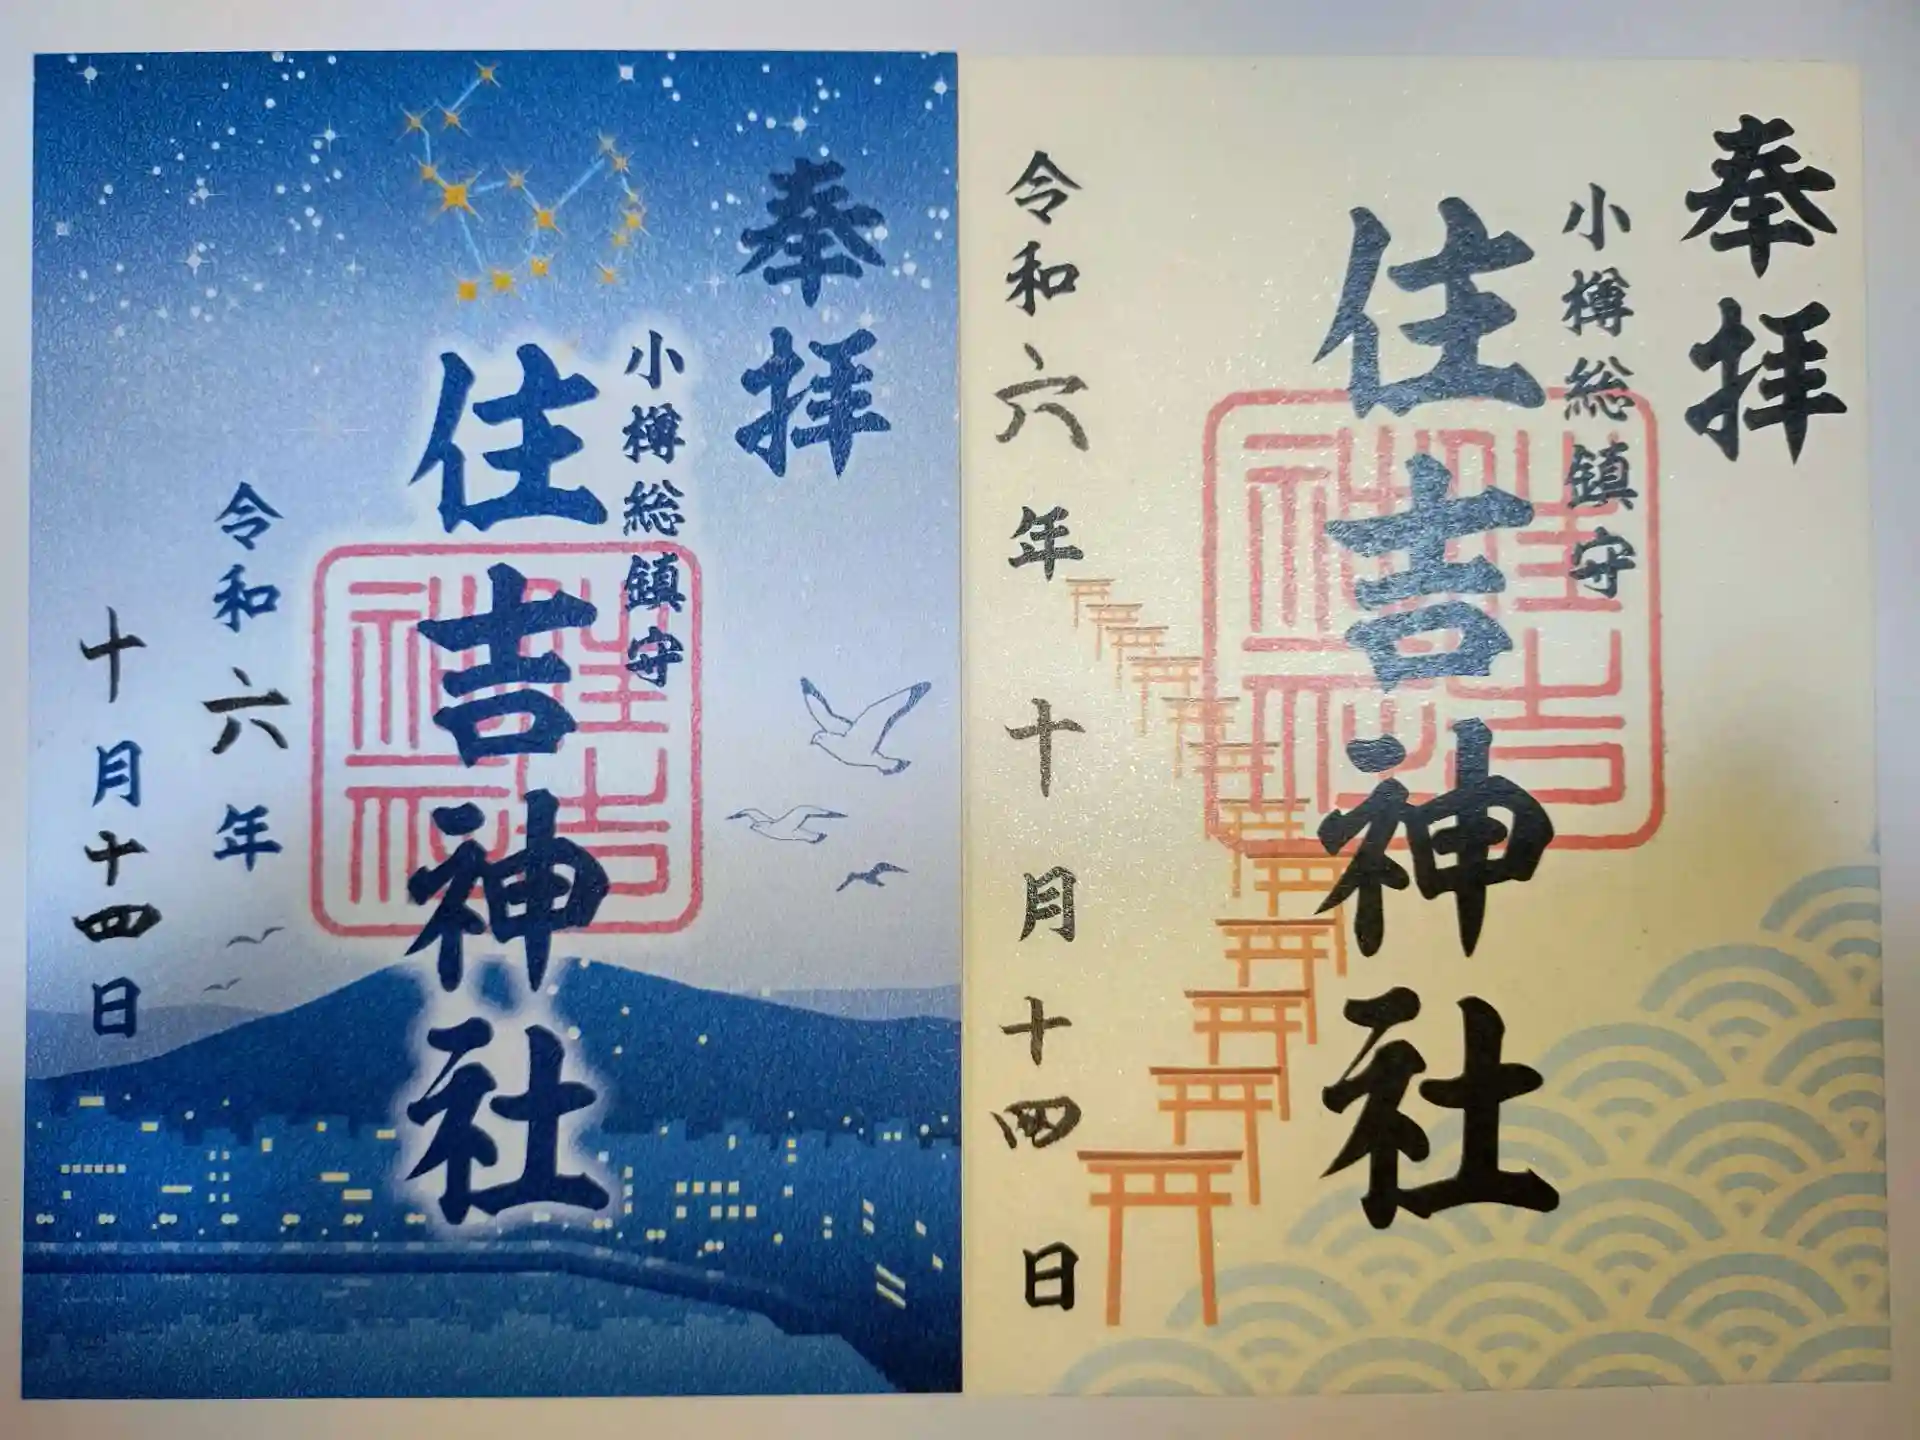 奉拝
小樽総鎮守
住吉神社
令和六年
十月十四日
奉拝
小樽総鎮守
住吉神社
令和六年十月十四日